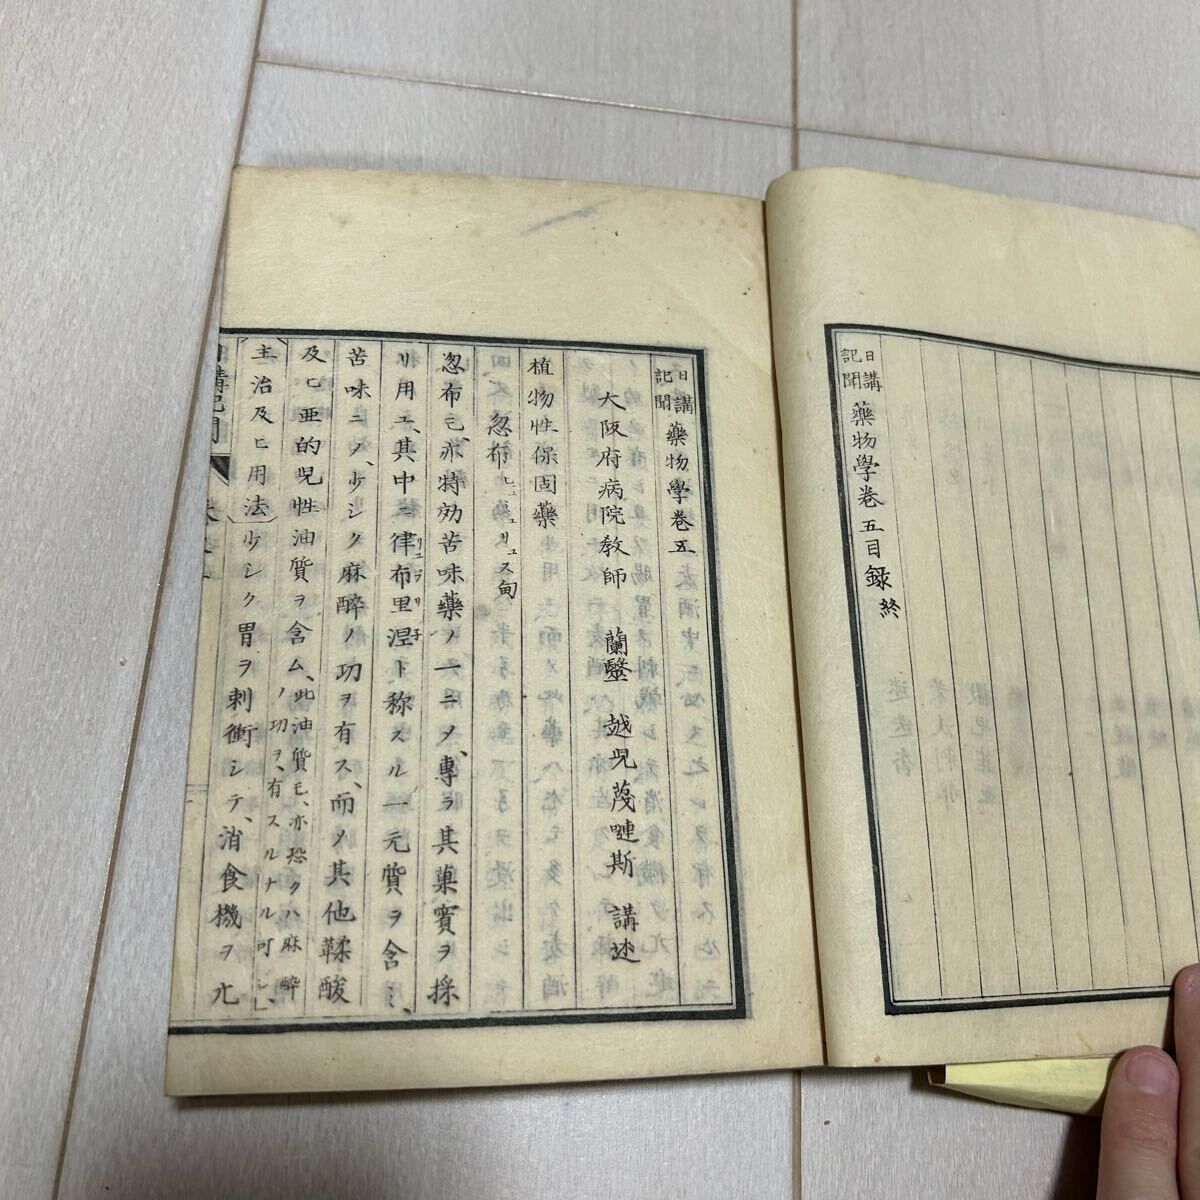 日講記聞 藥物學卷五目錄終
日講記聞 藥物學卷五
大阪府病院敎師 蘭醫 越兒蔑嗹斯 講述
植物性保固藥
忽布 ヒュミュリュス甸
忽布モ、亦特効苦味藥ノ一ニ〆、專ラ其菓實ヲ採
リ用ユ、其中ニ律布里涅ト称スル一元質ヲ含ミ、
リュプリ子
苦味ニ〆、少シク麻醉ノ功ヲ有ス、而〆其他鞣酸
及ヒ亜的兒性油質ヲ含ム、此油質モ、亦恐クハ麻醉
ノ功ヲ、有スルナル可シ、
主治及ヒ用法 少シク胃ヲ刺衝シテ、消食機ヲ亢
日講記聞